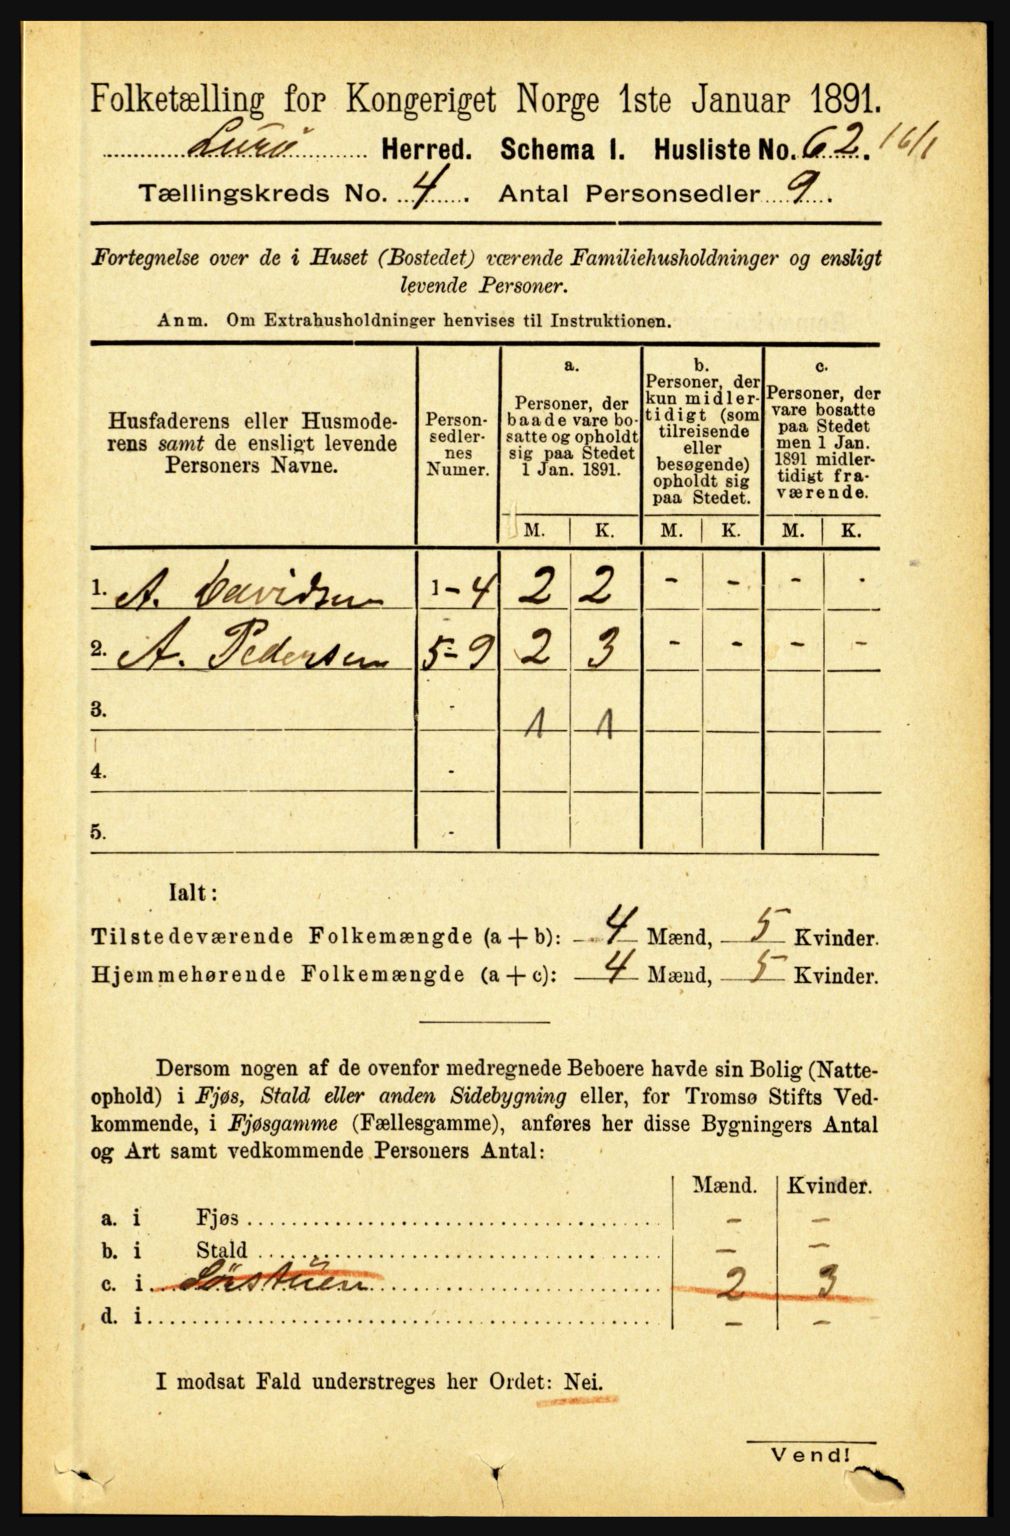 Folketælling for Kongeriget Norge 1ste Januar 1891.
Lurø Herred. Schema I. Husliste No. 62. 16/1
Tællingskreds No. 4. Antal Personsedler 9.
Fortegnelse over de i Huset (Bostedet) værende Familiehusholdninger og ensligt
levende Personer.
Anm. Om Extrahusholdninger henvises til Instruktionen.
Husfaderens eller Husmode-
rens samt de ensligt levende
Personers Navne.
Person-
sedler-
nes
Numer.
a.
Personer, der
baade vare bo-
satte og opholdt
sig paa Stedet
1 Jan. 1891.
b.
Personer, der
kun midler-
tidigt (som
tilreisende
eller
besøgende)
opholdt sig
paa Stedet.
c.
Personer, der
vare bosatte
paa Stedet
men 1 Jan.
1891 midler-
tidigt fra-
værende.
M. K. M. K. M. K.
1. A. Davidsen 1-4 2 2 - - - -
2. A. Pedersen 5-9 2 3 - - - -
3. - 1 1
4. -
5. -
Ialt:
Tilstedeværende Folkemængde (a + b): 4 Mænd, 5 Kvinder.
Hjemmehørende Folkemængde (a + c): 4 Mænd, 5 Kvinder.
Dersom nogen af de ovenfor medregnede Beboere havde sin Bolig (Natte-
ophold) i Fjøs, Stald eller anden Sidebygning eller, for Tromsø Stifts Ved-
kommende, i Fjøsgamme (Fællesgamme), anføres her disse Bygningers Antal
og Art samt vedkommende Personers Antal:
Mænd. Kvinder.
a. i Fjøs - -
b. i Stald - -
c. i Sörstuen 2 3
d. i - -
I modsat Fald understreges her Ordet: Nei.
Vend!